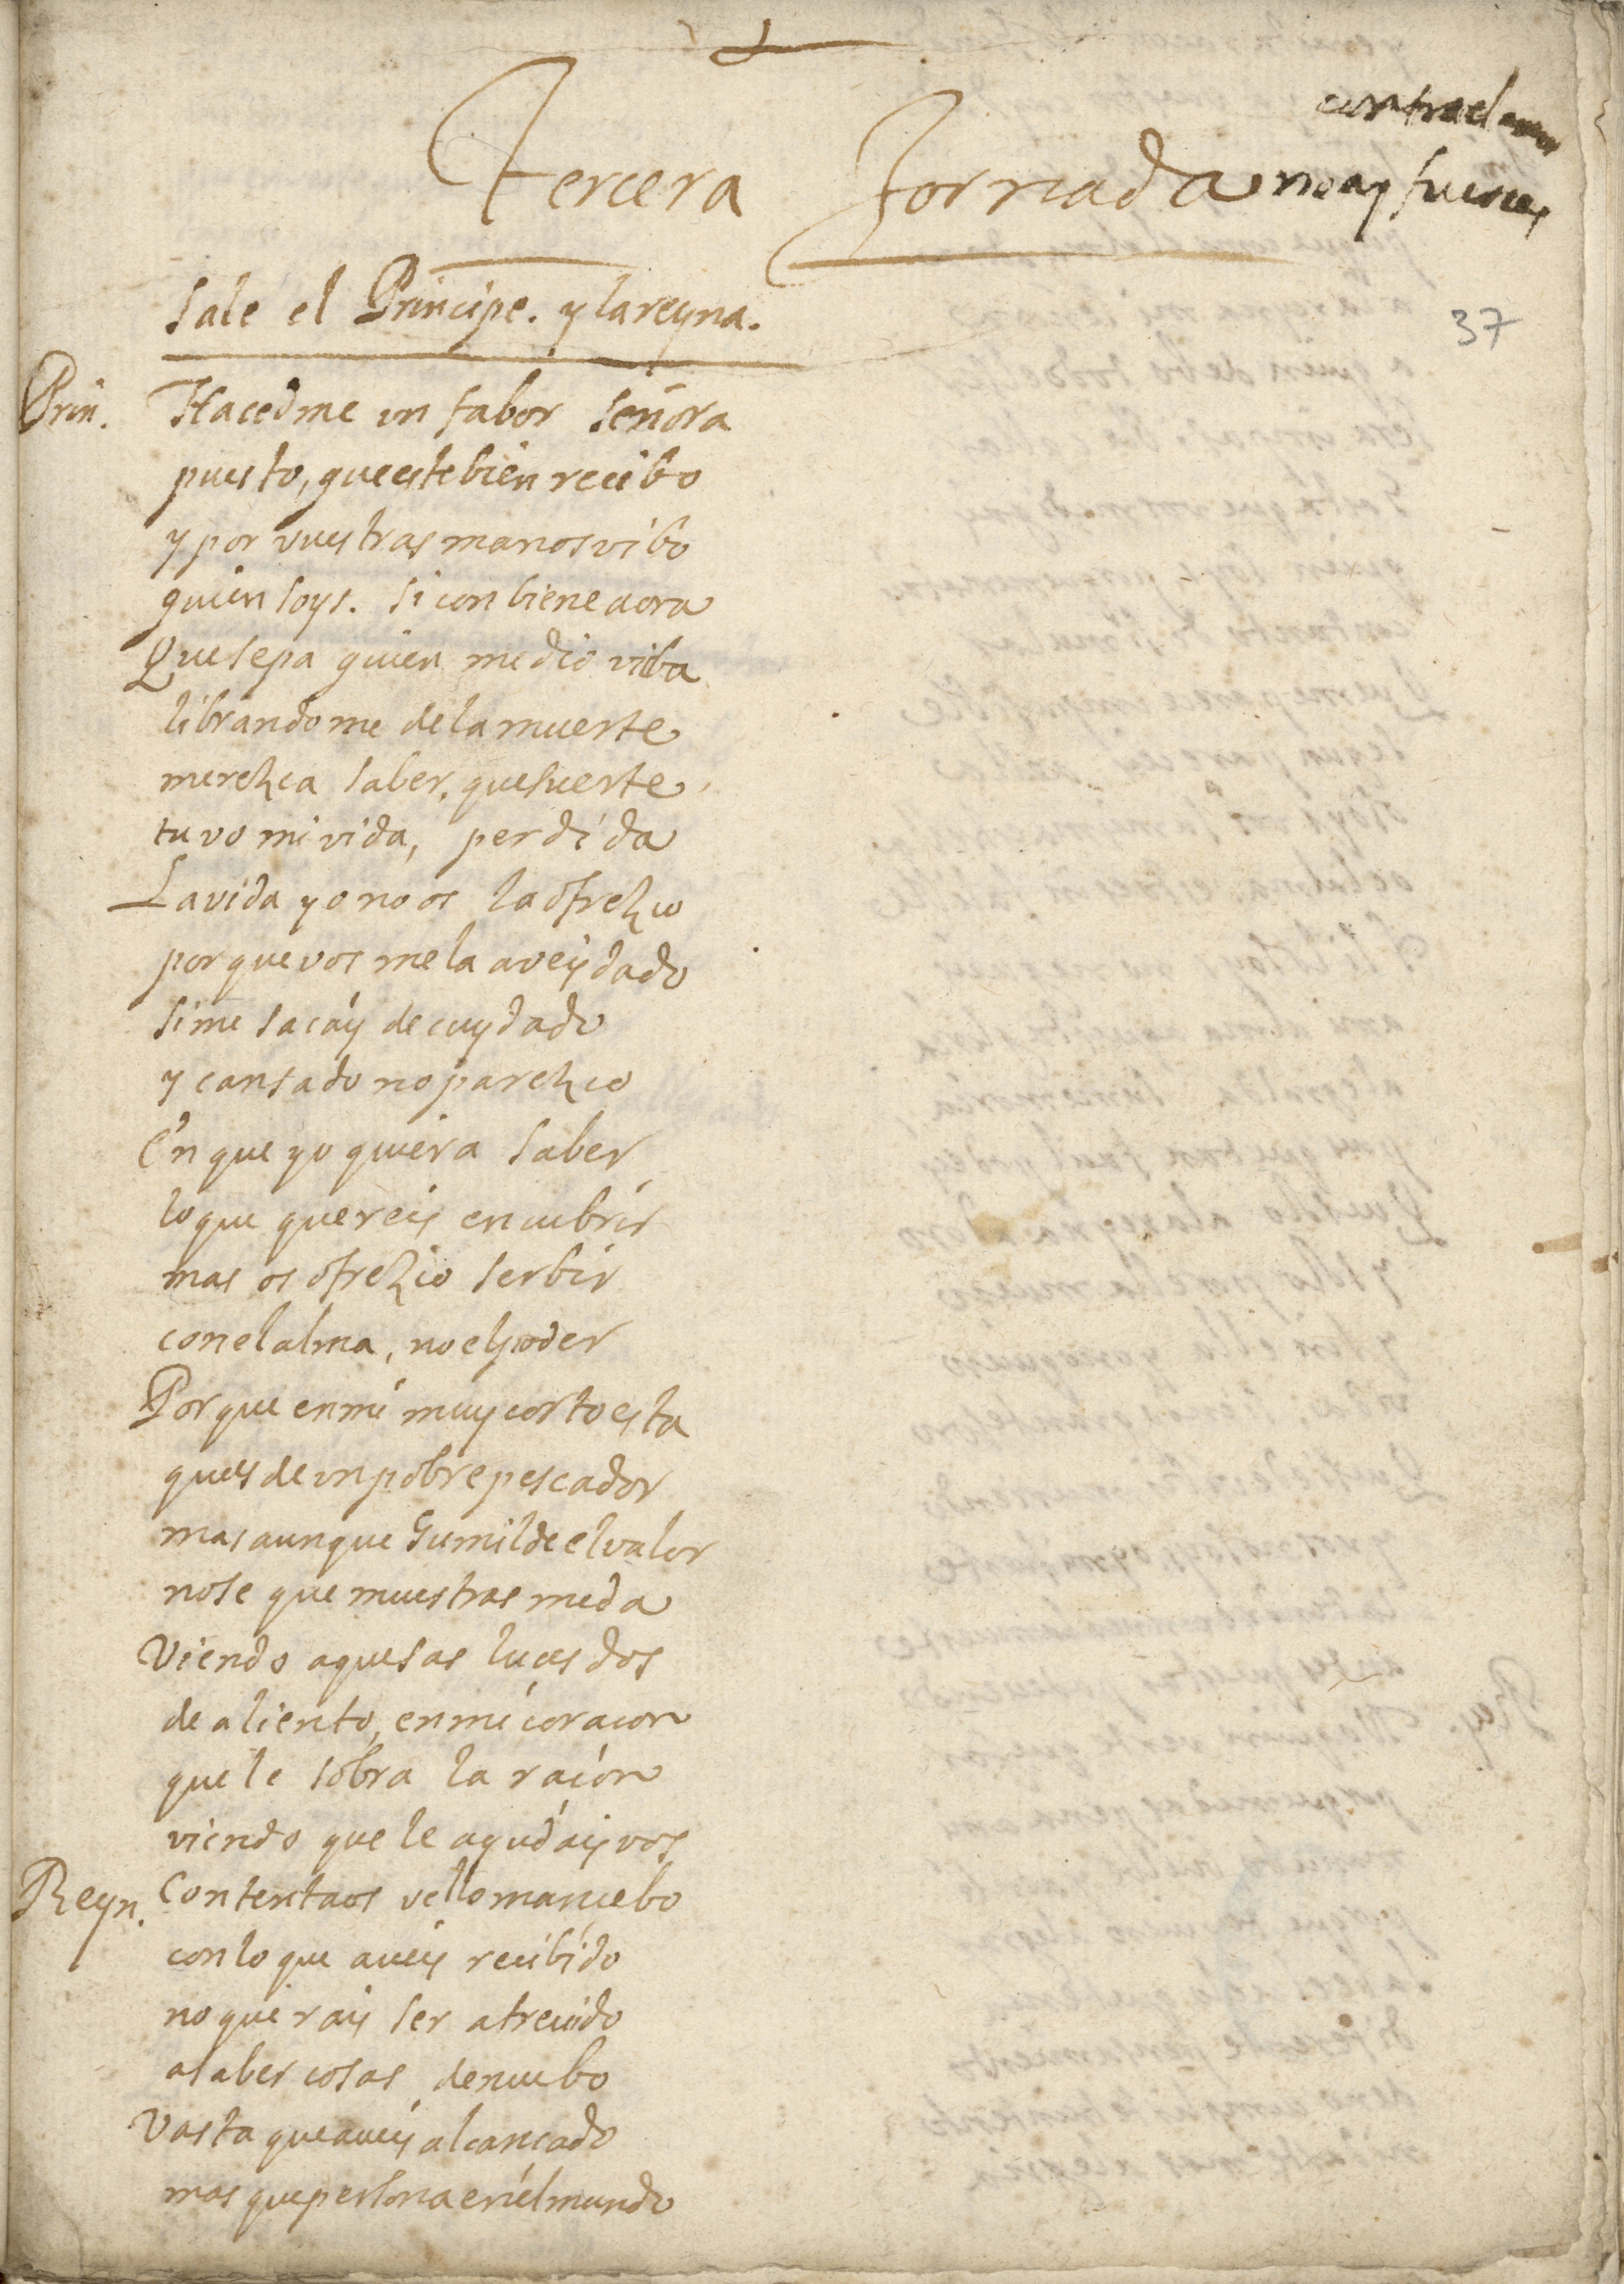 contra el amor
Tercera Jornada no ay fuerças
37
Sale el Principe. y la reyna.
Prin. Hacedme un fabor señora
puesto, que este bien recibo
y por vuestras manos vibo
quien soys. si conbiene aora
Que sepa quien me dio vida
librandome de la muerte
merezca saber, que suerte
tuvo mi vida, perdida
La vida yo no os la ofrezco
porque vos me la aveis dado
si me sacáis de cuydado
y cansado no parezco
En que yo quiera saber
lo que quereis encubrir
mas os ofrezco serbir
con el alma, no el poder
Porque en mi muy corto esta
ques de un pobre pescador
mas aunque humilde el valor
no se que muestras me da
Viendo aquesas luces dos
de aliento, en mi coraçon
que le sobra la raçón
viendo que le ayudáis vos
Reyn. Contentaos vello mancebo
con lo que aveis recibido
no querais ser atrevido
a saber cosas de nuebo
Vasta que aveis alcançado
mas que persona en el mundo